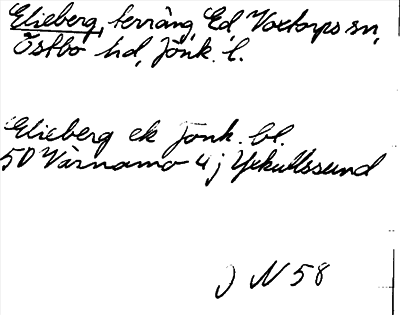 Elieberg, terräng, Ed, Voxtorps sn,
Östbo hd, Jönk. l.
Elieberg ek Jönk. bl.
5D Värnamo 4 j
J N 58